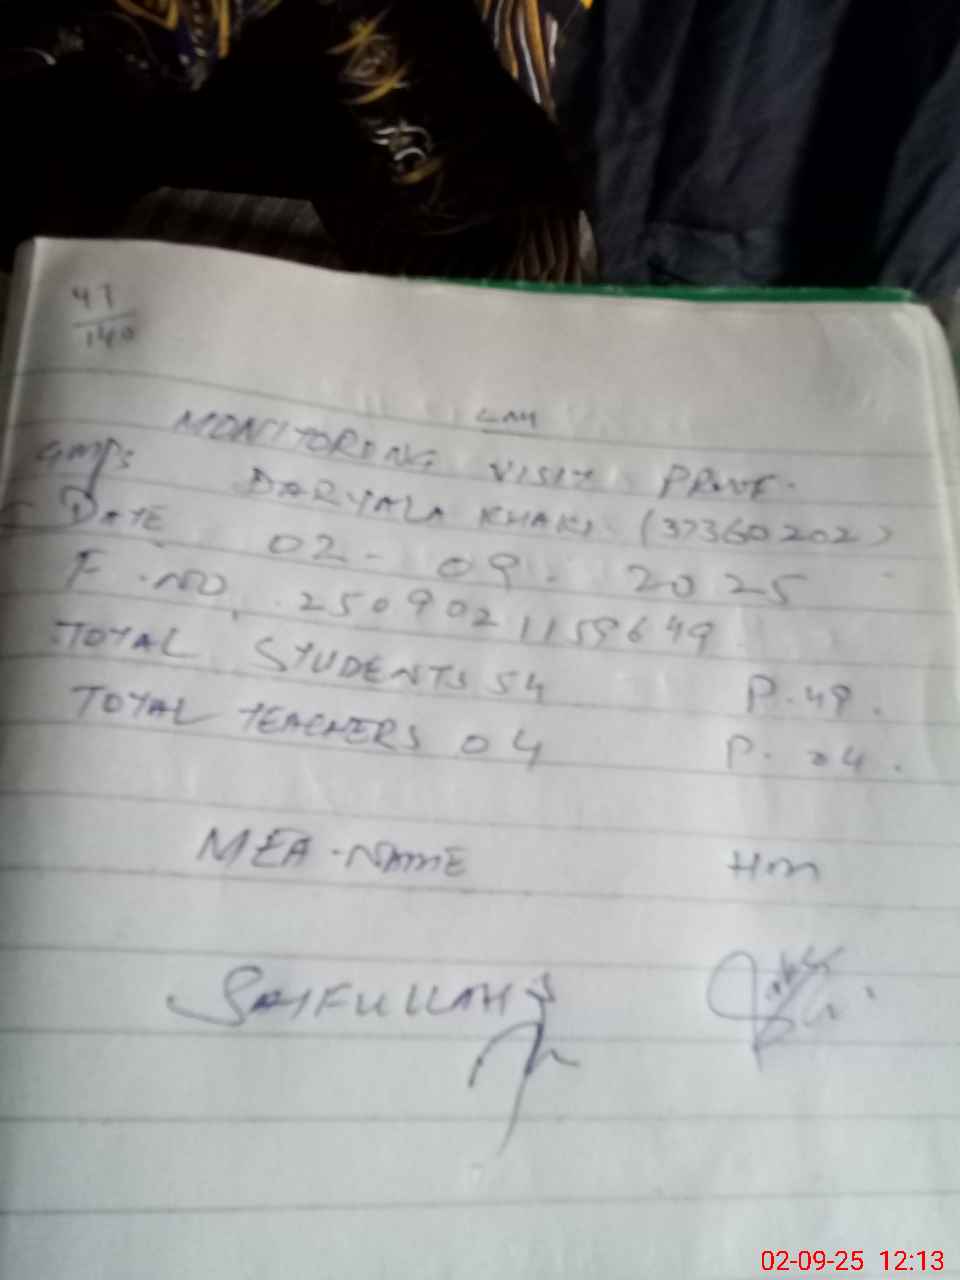 47
140
LAM
MONITORING VISIT PROOF.
GMPS DARYALA KHAKI (37360202)
DATE 02-09-2025
F.NO. 2509021159649
TOTAL STUDENTS 54 P.49.
TOTAL TEACHERS 04 P. 04.
MEA-NAME HM
SAIFULLAH
02-09-25 12:13